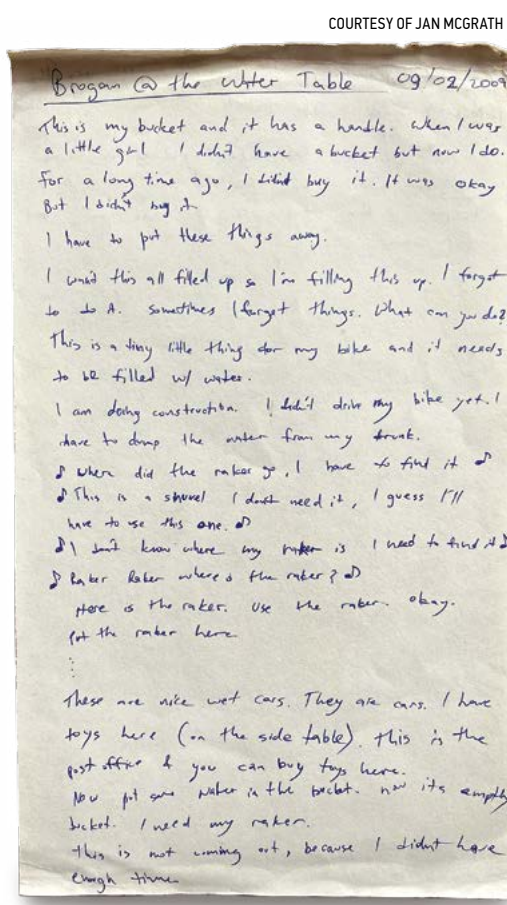 COURTESY OF JAN MCGRATH
Brogan @ the Water Table 09/02/2009
This is my bucket and it has a handle. When I was
a little girl I didn't have a bucket but now I do.
For a long time ago, I didn't buy it. It was okay
But I didn't buy it.
I have to put these things away.
I want this all filled up so I'm filling this up. I forgot
to do A. sometimes I forget things. What can you do?
This is a tiny little thing for my bike and it needs
to be filled w/ water.
I am doing construction. I didn't drive my bike yet. I
have to dump the water from my trunk.
♪ where did the raker go, I have to find it ♪
♪ This is a shovel I don't need it, I guess I'll
have to use this one. ♪
♪ I don't know where my raker is I need to find it ♪
♪ Raker Raker where's the raker? ♪
Here is the raker. Use the raker. okay.
Put the raker here
⋮
These are nice wet cars. They are cars. I have
toys here (on the side table). this is the
post office & you can buy toys here.
Now put some water in the bucket. now its empty
bucket. I need my raker.
this is not coming out, because I didn't have
enough time